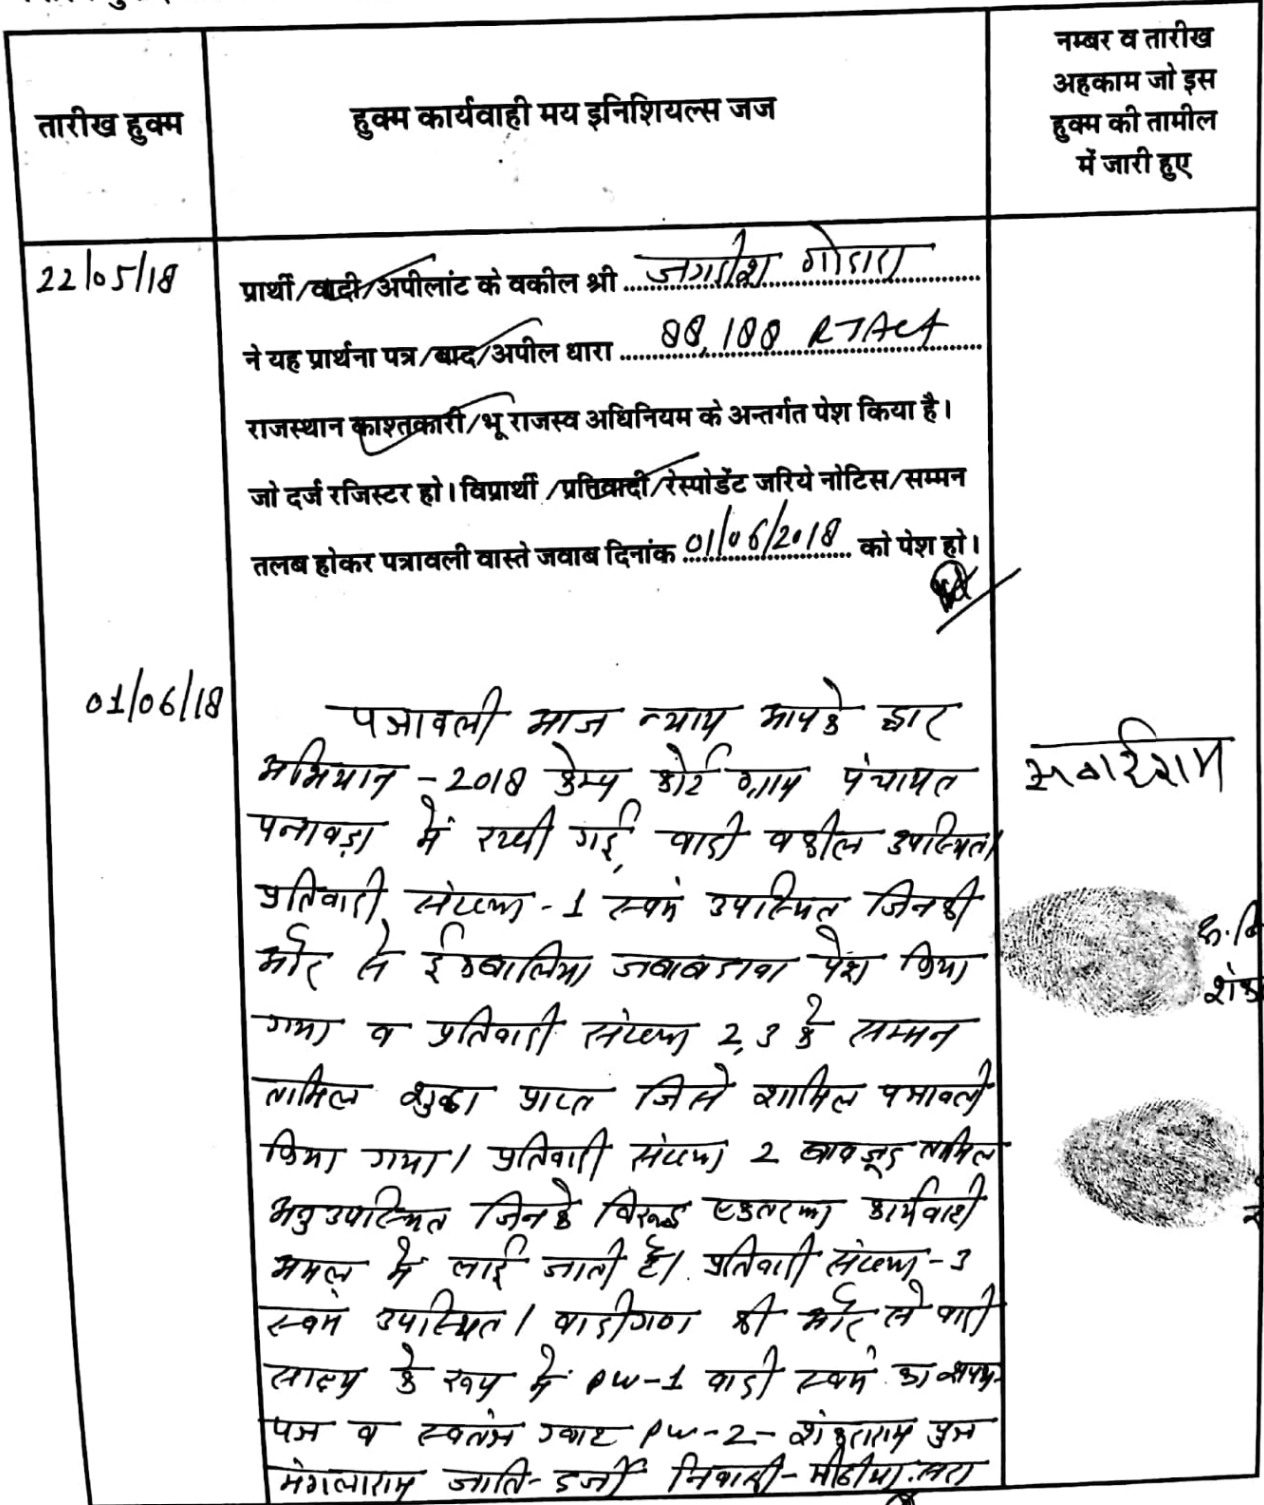 तारीख हुक्म
हुक्म कार्यवाही मय इनिशियल्स जज
नम्बर व तारीख
अहकाम जो इस
हुक्म की तामील
में जारी हुए
22/05/18
प्रार्थी/वादी/अपीलांट के वकील श्री जगदीश गोदारा
ने यह प्रार्थना पत्र/वाद/अपील धारा 88,188 RTAct
राजस्थान काश्तकारी/भू राजस्व अधिनियम के अन्तर्गत पेश किया है।
जो दर्ज रजिस्टर हो। विप्रार्थी/प्रतिवादी/रेस्पोडेंट जरिये नोटिस/सम्मन
तलब होकर पत्रावली वास्ते जवाब दिनांक 01/06/2018 को पेश हो।
01/06/18
पत्रावली आज न्याय आपके द्वार
अभियान -2018 केम्प कोर्ट ग्राम पंचायत
पनावड़ा में रखी गई, वादी वकील उपस्थित।
प्रतिवादी संख्या -1 स्वयं उपस्थित जिनकी
और से ईकबालिया जवाबदावा पेश किया
गया व प्रतिवादी संख्या 2,3 के सम्मन
तामिल शुदा प्राप्त जिसे शामिल पत्रावली
किया गया। प्रतिवादी संख्या 2 बावजूद तामिल
अनुउपस्थित जिनके विरूद्ध एकतरफा कार्यवाही
अमल में लाई जाती है। प्रतिवादी संख्या-3
स्वयं उपस्थित। वादीगण की और से वादी
साक्ष्य के रूप में PW-1 वादी स्वयं का शपथ-
पत्र व स्वतंत्र गवाह PW-2- शंकराराम पुत्र
मंगलाराम जाति- दर्जी निवासी-
सवाईराम